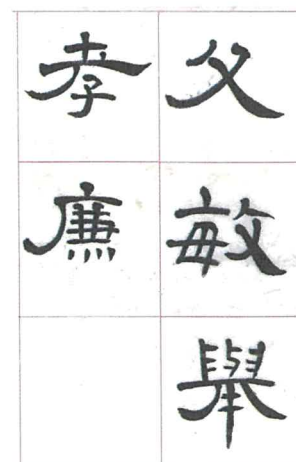 父敏舉
孝廉